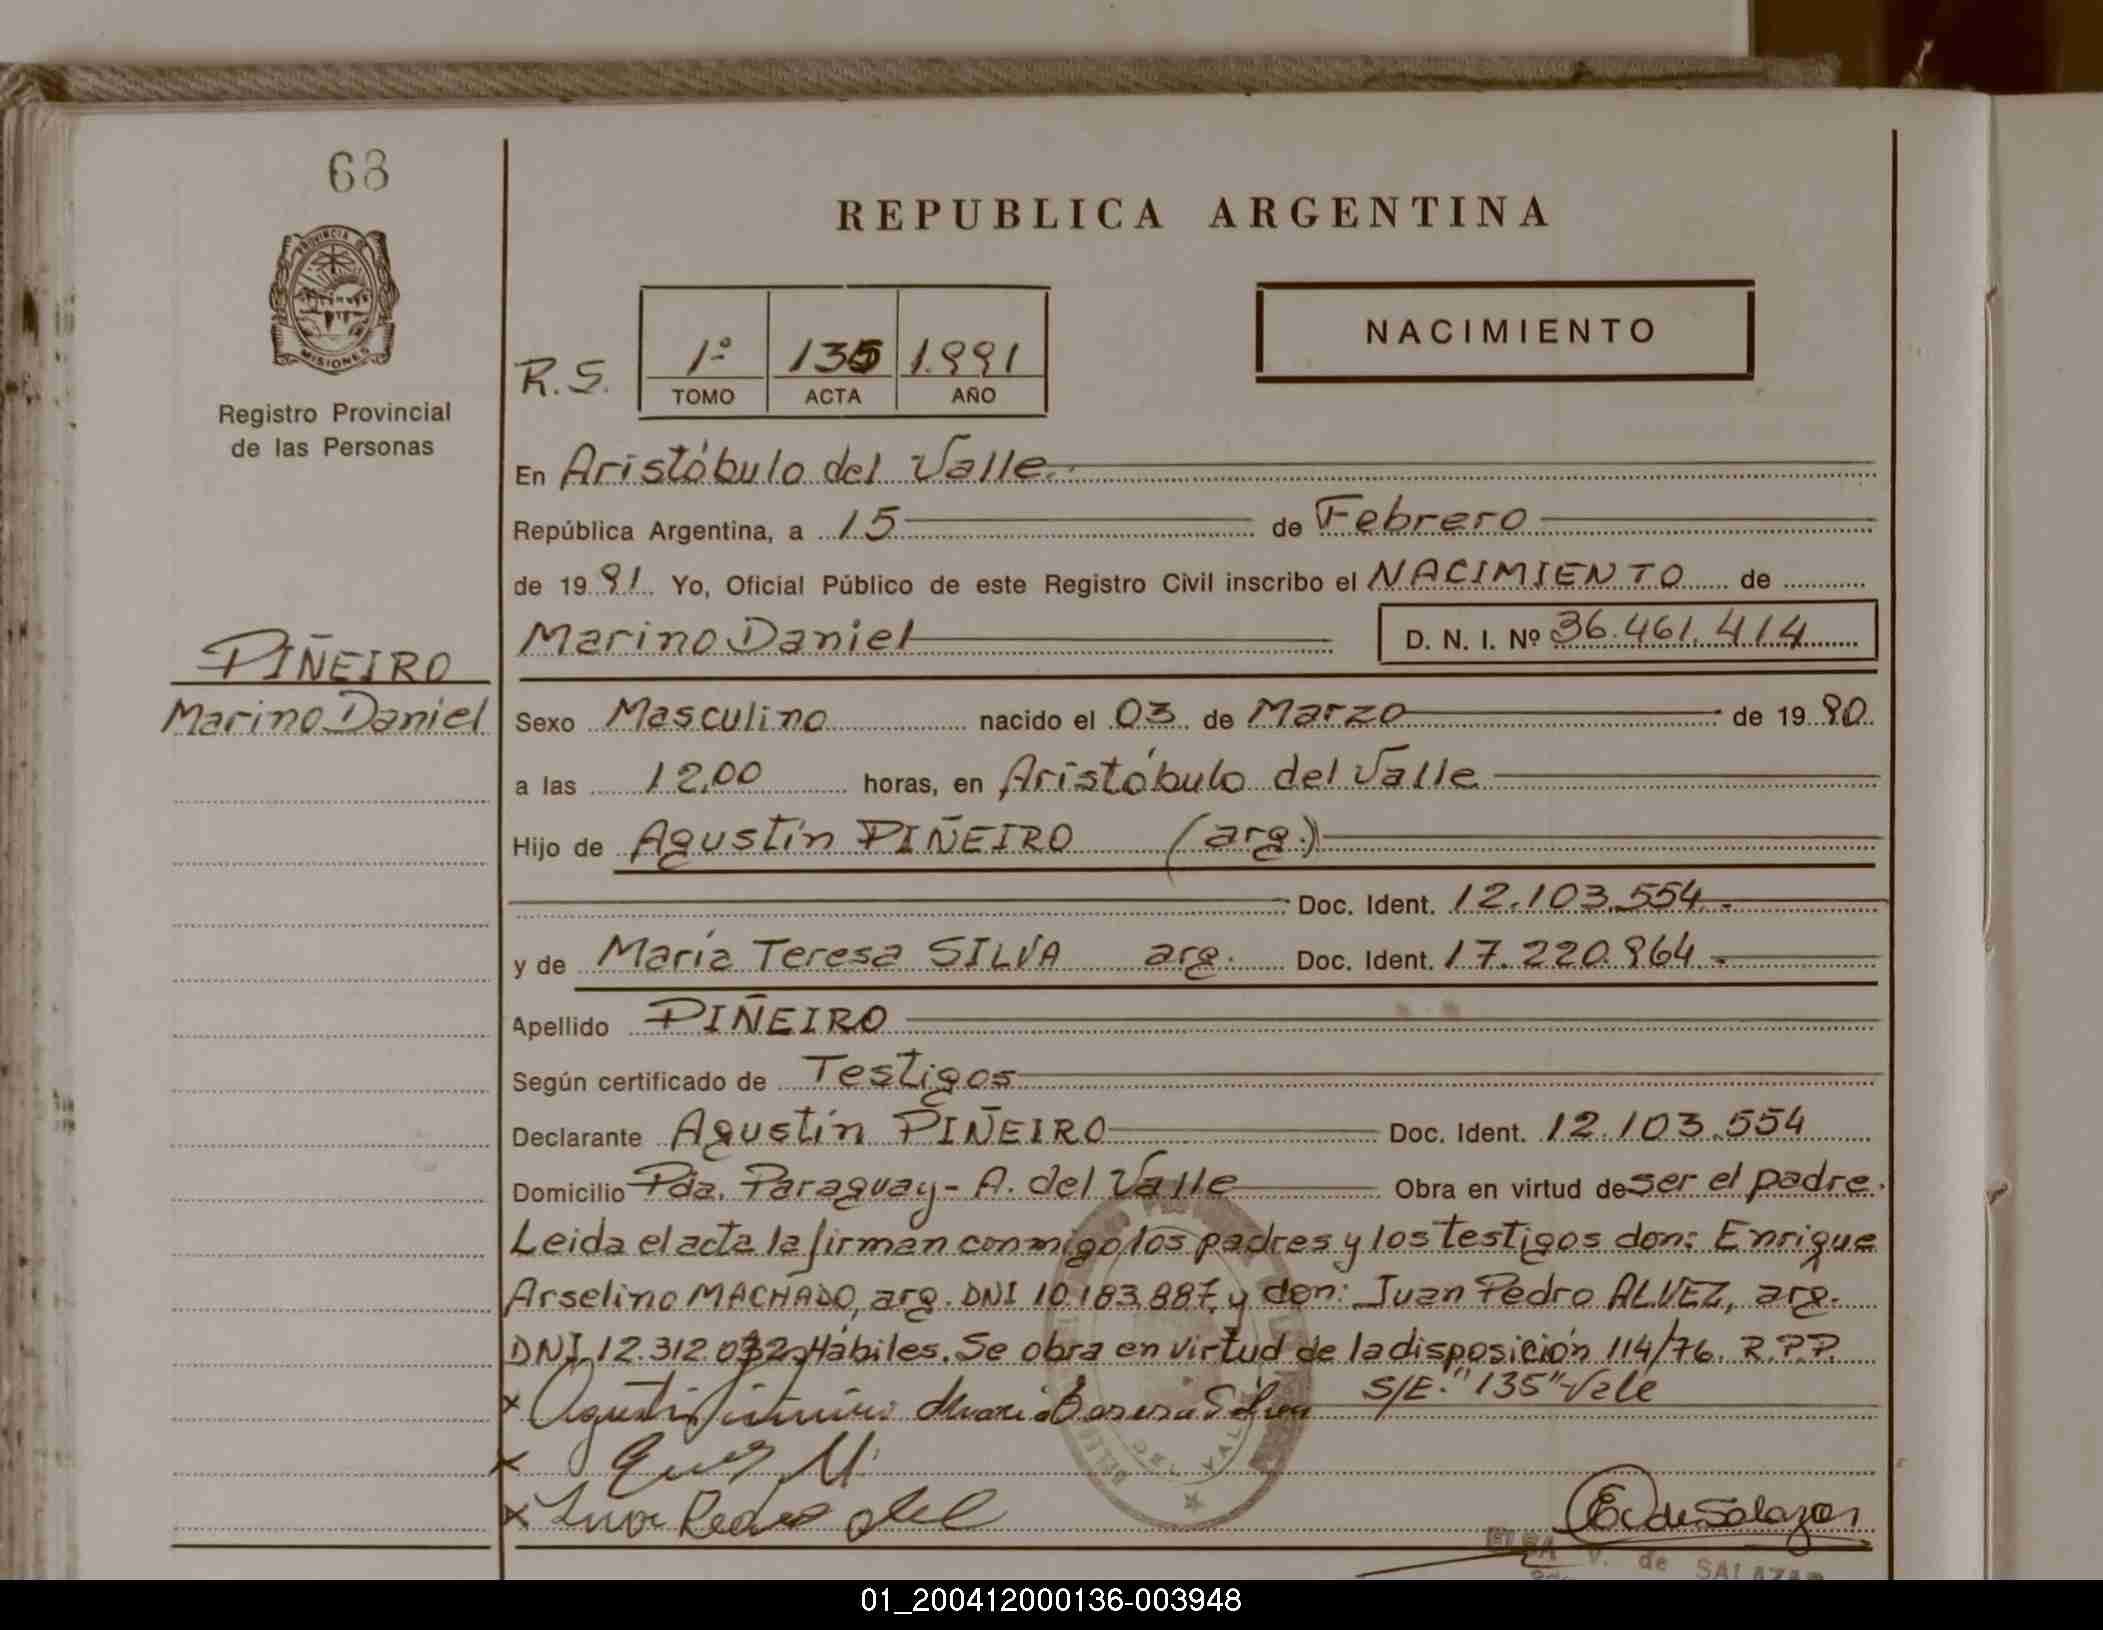 68
PROVINCIA DE
MISIONES
Registro Provincial
de las Personas
PIÑEIRO
Marino Daniel
REPUBLICA ARGENTINA
NACIMIENTO
R.S. 1º 135 1.991
TOMO ACTA AÑO
En Aristóbulo del Valle.
República Argentina, a 15 de Febrero
de 1991 Yo, Oficial Público de este Registro Civil inscribo el NACIMIENTO de
Marino Daniel D. N. I. Nº 36.461.414
Sexo Masculino nacido el 03 de Marzo de 1990
a las 12,00 horas, en Aristóbulo del Valle
Hijo de Agustín PIÑEIRO (arg.)
Doc. Ident. 12.103.554.-
y de María Teresa SILVA arg. Doc. Ident. 17.220.964.-
Apellido PIÑEIRO
Según certificado de Testigos
Declarante Agustín PIÑEIRO Doc. Ident. 12.103.554
Domicilio Pda. Paraguay - A. del Valle Obra en virtud de ser el padre.
Leida el acta la firman conmigo los padres y los testigos don: Enrique
Arselino MACHADO, arg. DNI 10.183.887, y don: Juan Pedro ALVEZ, arg.
DNI 12.312.032, Hábiles. Se obra en virtud de la disposición 114/76. R.P.P.
S/E: "135" Vale
DEL VALLE
E. de Salazar
ELSA V. de SALAZAR
01_200412000136-003948